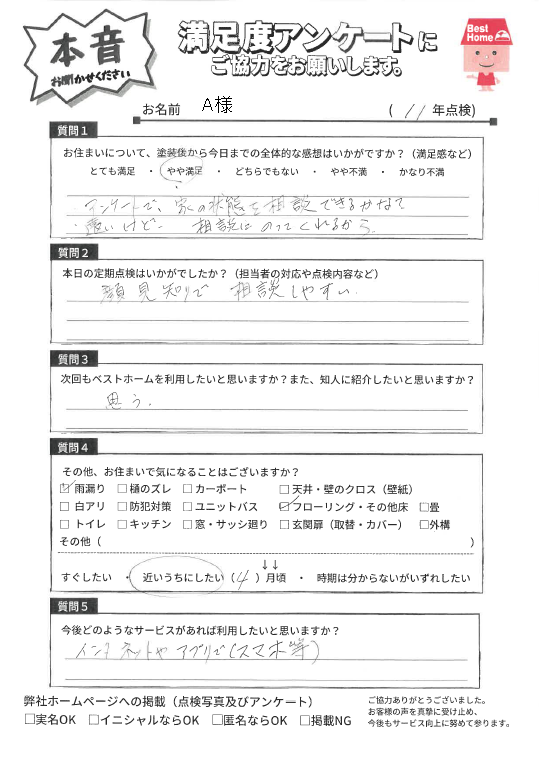 本音
お聞かせください
満足度アンケートに
ご協力をお願いします。
Best Home
お名前 A様 ( 11 年点検)
質問1
お住まいについて、塗装後から今日までの全体的な感想はいかがですか?(満足感など)
とても満足 ・ やや満足 ・ どちらでもない ・ やや不満 ・ かなり不満
・インケートで、家の状態を相談できるかなて
・遠いけど、 相談にのってくれるから
質問2
本日の定期点検はいかがでしたか?(担当者の対応や点検内容など)
顔見知りで 相談しやすい.
質問3
次回もベストホームを利用したいと思いますか?また、知人に紹介したいと思いますか?
思う.
質問4
その他、お住まいで気になることはございますか?
☑雨漏り □樋のズレ □カーポート □天井・壁のクロス(壁紙)
□白アリ □防犯対策 □ユニットバス ☑フローリング・その他床 □畳
□トイレ □キッチン □窓・サッシ廻り □玄関扉(取替・カバー) □外構
その他( )
↓↓
すぐしたい ・ 近いうちにしたい(4)月頃 ・ 時期は分からないがいずれしたい
質問5
今後どのようなサービスがあれば利用したいと思いますか?
インタネットや アプリで(スマホ等)
弊社ホームページへの掲載(点検写真及びアンケート)
□実名OK □イニシャルならOK □匿名ならOK □掲載NG
ご協力ありがとうございました。
お客様の声を真摯に受け止め、
今後もサービス向上に努めて参ります。